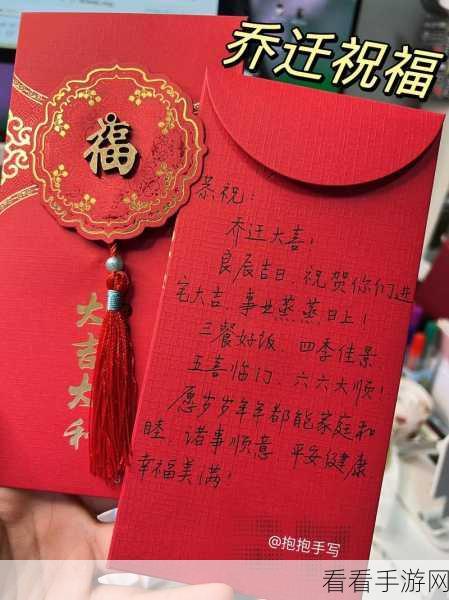 乔迁祝福
福
大吉大利
恭祝：
乔迁大喜！
良辰吉日，祝贺你们进
宅大吉、事业蒸蒸日上！
三餐好饭、四季佳景
五喜临门、六六大顺！
愿岁岁年年都能家庭和
睦、诸事顺意 平安健康、
幸福美满！
@抱抱手写
看看手游网